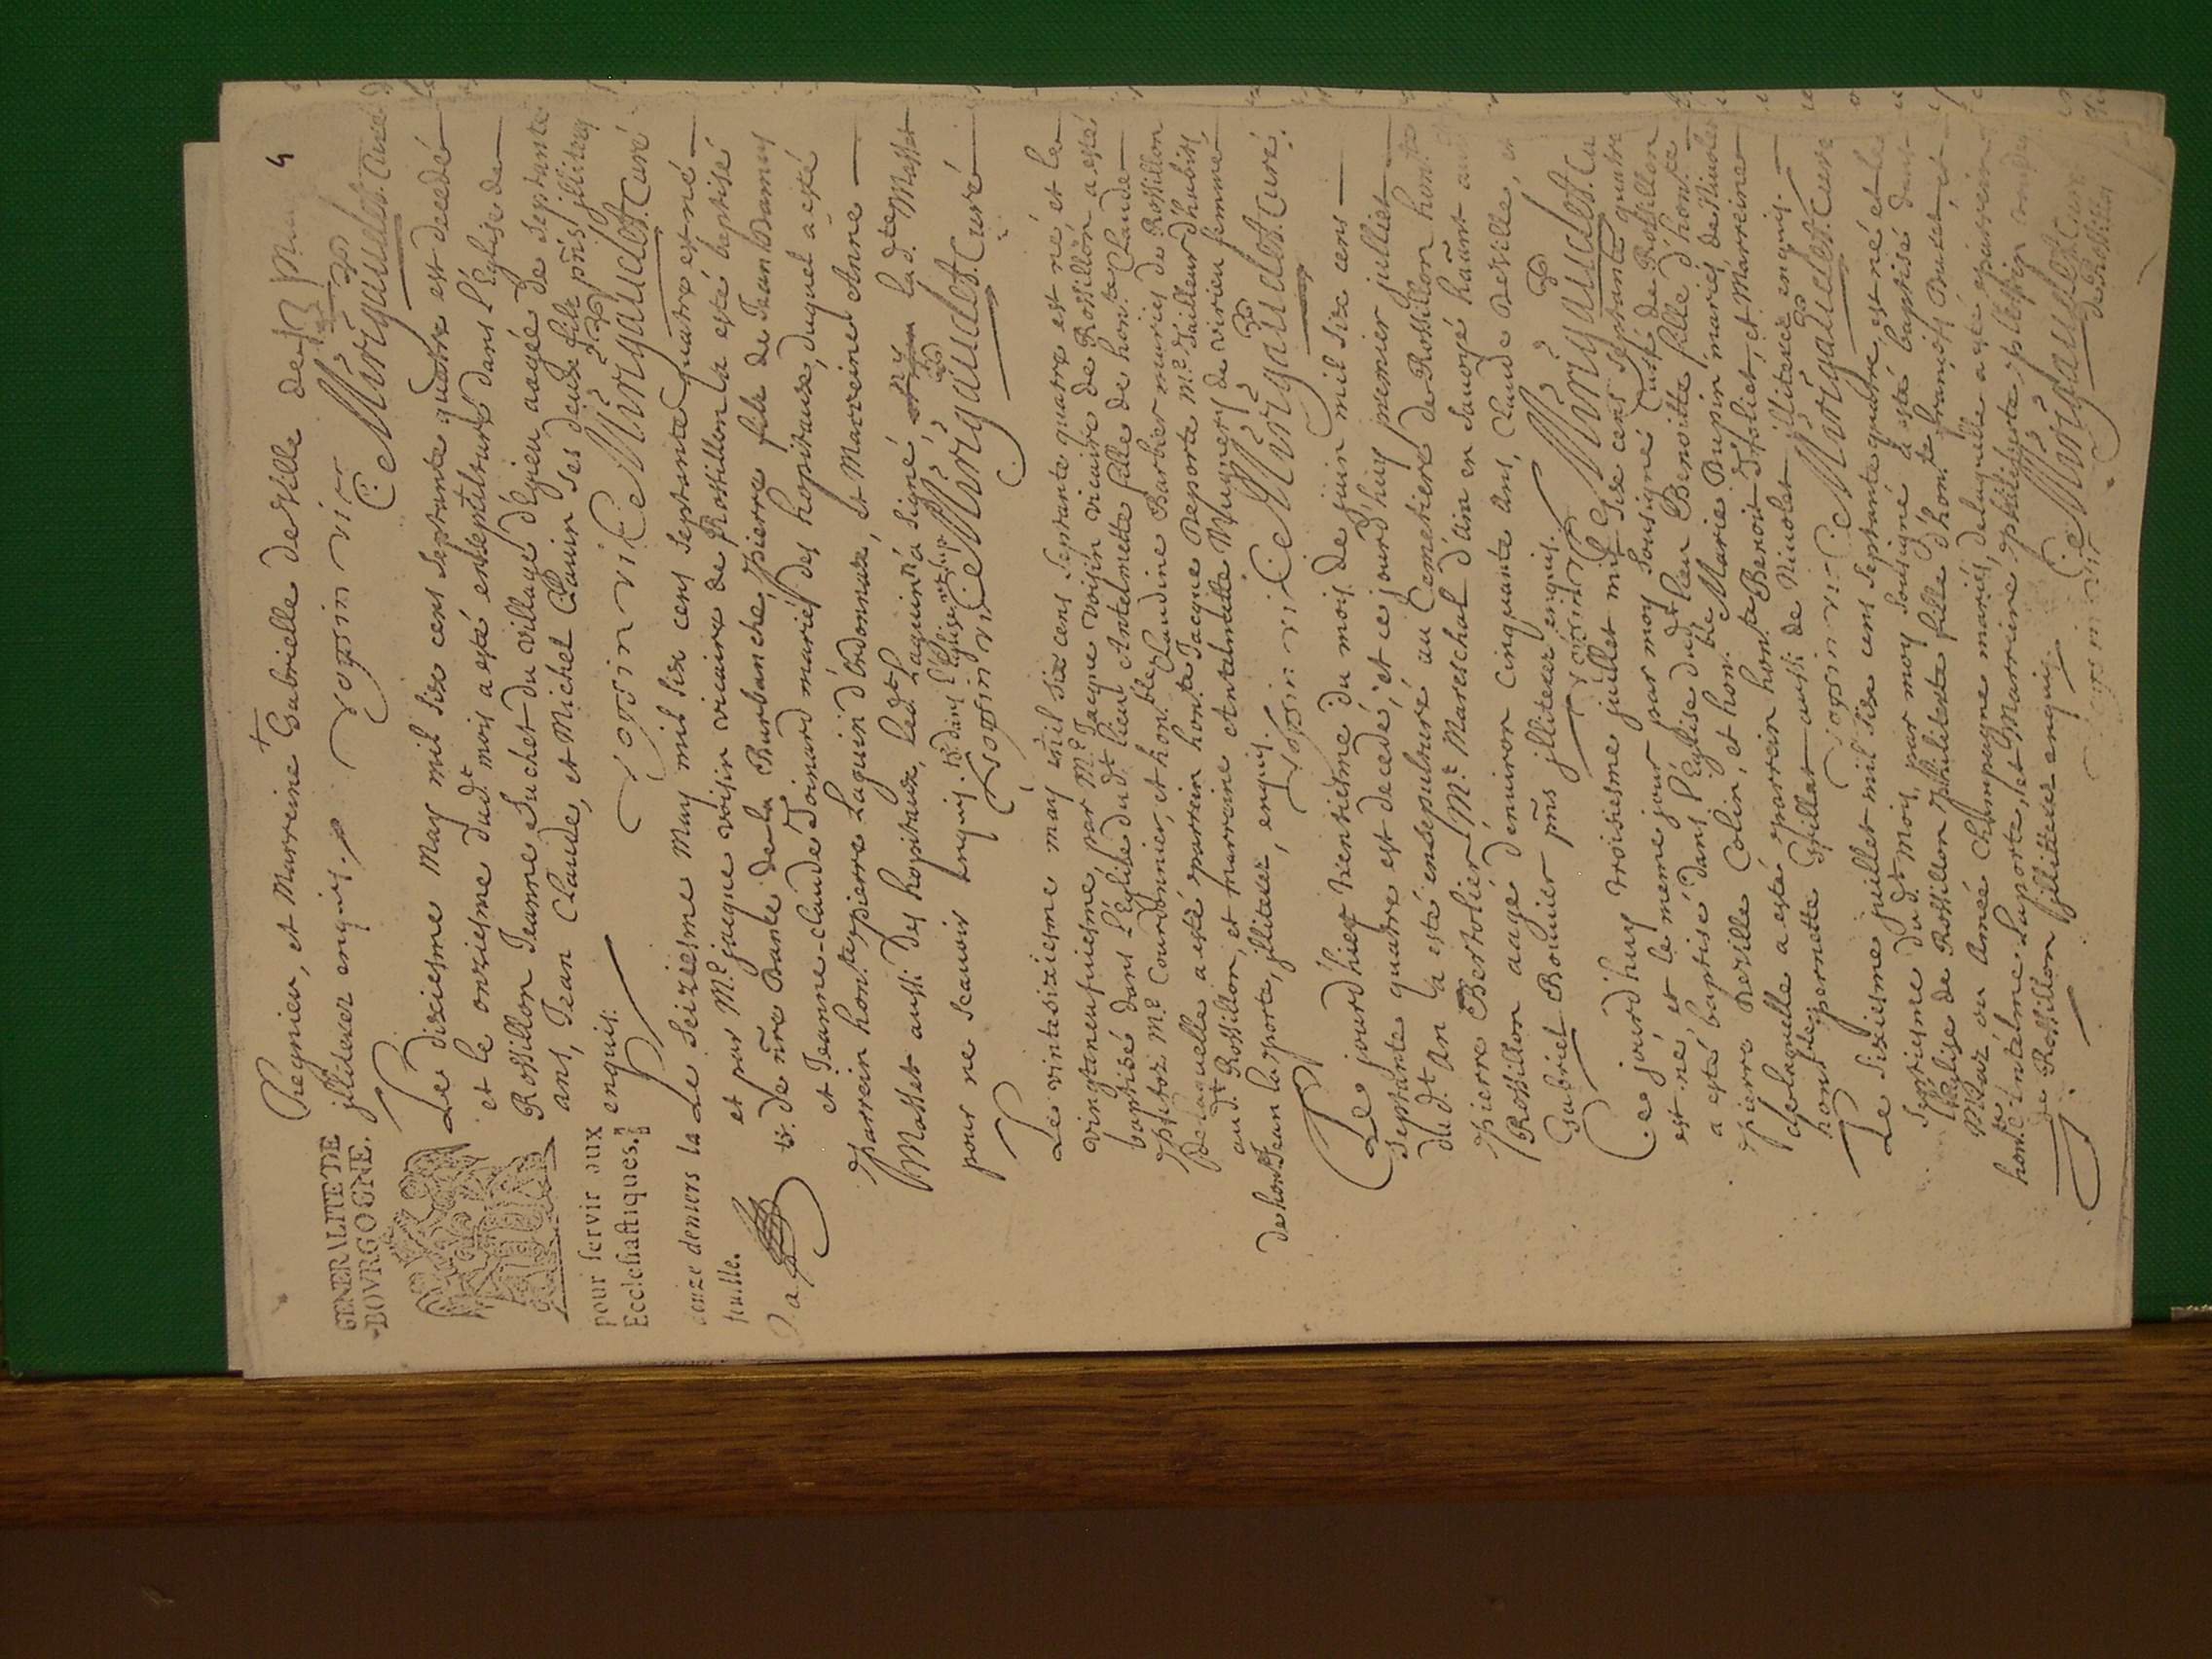 4
Pregnieu, et Marreine Gabrielle deville de
illiterez enquis.
voysin vic
C. Mürigaudet. Curé
GENERALITE DE
BOVRGOGNE.
pour servir aux
Ecclesiastiques.
deniers la
feuille.
Le diziesme May mil six cens septante quattre est decedé
et le onziesme dud.t mois a esté ensepulturée dans l'Eglise de
Rossillon Jeanne Suchet du village d'Egieu aagée de septante
ans, Jean Claude, et Michel Clauin ses deux fils pñs jlliterez
enquis.
voysin vic
C. Mürigaudet. Curé
Le seiziesme May mil six cens septante quattre est né
et par M.e jacque voisin vicaire de Rossillon la esté baptisé
de nr̃e Banche de la Burbanche, Pierre fils de Jean
et Jeanne-Claude Joinard mariés des hopitaux, duquel a esté
Parrein hon.te pierre Laguin d'Ordonnax, et Marreine Anne
Masset aussi des hopitaux, led.t Laguin a signé, ny lad.te Masset
pour ne sçauoir enquis
voysin vic
C. Mürigaudet. Curé
Le vintesixiesme may mil six cens septante quatre est né et le
vingtneufuiesme par M.e Jacque voisin vicaire de Rossillon a esté
baptisé dans l'Eglise du d.t lieu Antelmette fille de hon.te Claude
M.e Courdonnier, et hon.ble Claudine Barbier mariés de Rossillon
de laquelle a esté parrein hon.te Jacque Deporte M.e Tailleur d'habits
au d. Rossillon, et marreine Antelmette Mugnery de virieu femme
de hon.te Jean laporte, jlliterez, enquis.
voysin vic
C. Mürigaudet. Curé.
Le jourd'hier trentiesme du mois de juin mil six cens
septante quatre est decedé, et ce jourd'huy premier julliet
du d.t An la esté ensepulturé au Cemetiere de Rossillon hon.te
Pierre Bertolier M.e Mareschal d'Ain en Sauoye
Rossillon aagé d'enuiron cinquante ans, Claude deville, et
Gabriel Bouuier pñs jlliterez enquis.
voisin vic
C. Mürigaudet. Cu
Ce jourd'huy troisiesme juillet mil six cens septante quatre
est né, et le meme jour par moy sousigné Curé de Rossillon
a esté baptisé dans l'Eglise dud.t lieu Benoitte fille d'hon.te
Pierre Bezille Colin, et hon.ble Marie Dupin mariés de Niuolet
de laquelle a esté parrein hon.te Benoit et Marreine
hon.ble pernette Gillet aussi de Niuolet jlliterez enquis.
voysin vic
C. Mürigaudet. Curé
Le sixiesme juillet mil six cens septante quatre est né et le
septiesme du d.t Mois, par moy sousigné a esté baptisé dans
l'Eglise de Rossillon Philiberte fille d'hon.te françois
Amée Champagne mariés, de laquelle a esté parrein
hon.te Antelme Laporte, et Marreine Philiberte
de Rossillon jlliterez enquis.
voysin vic
C. Mürigaudet. Curé
de Rossillon